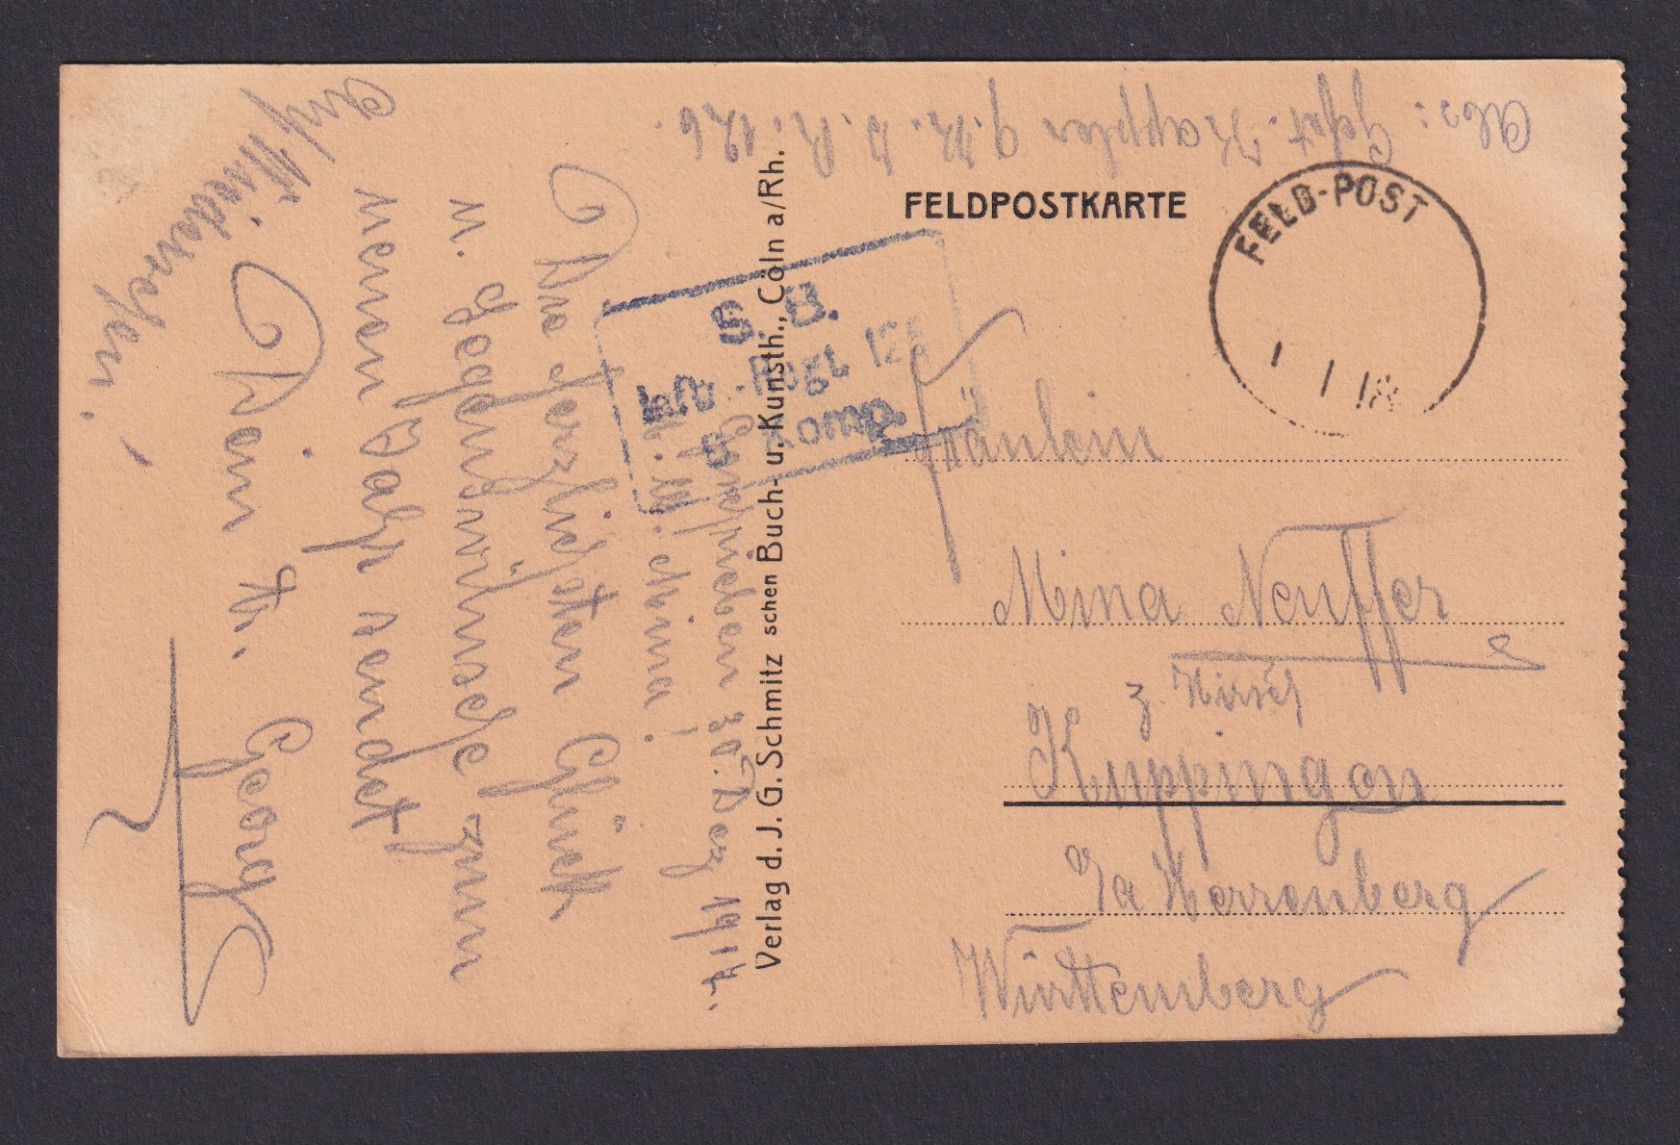 Abs: Gefr. Kappler 9. K. I. R. 126.
FELDPOSTKARTE
FELD-POST
1 1 18
S. B.
Inftr.-Rugt 126
9 Komp.
Fräulein
Mina Neuffer
z. Hirsch
Kuppingen
Oa Herrenberg
Württemberg
Verlag d. J. G. Schmitz schen Buch- u. Kunsth., Cöln a/Rh.
Geschrieben 30. Dez 1917.
M. Mina!
Die herzlichsten Glück
u. Segenswünsche zum
neuen Jahr sendet
Dein Fr. Georg
Auf Wiedersehen!